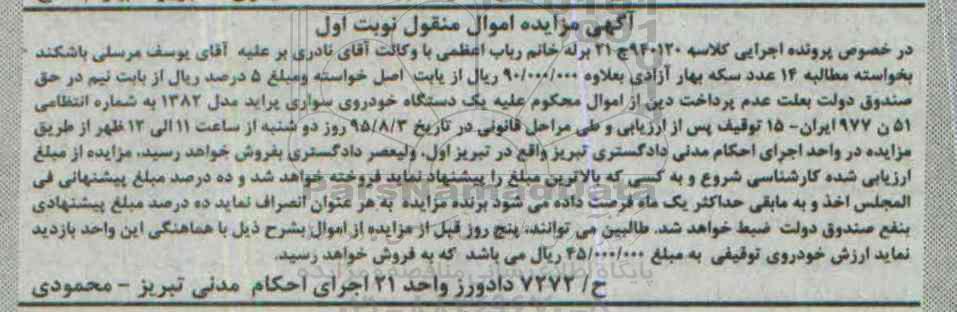 آگهی مزایده اموال منقول نوبت اول
در خصوص پرونده اجرایی کلاسه ۹۴۰۱۲۰ج ۲۱ برله خانم رباب اعظمی با وکالت آقای نادری بر علیه آقای یوسف مرسلی باشکند
بخواسته مطالبه ۱۴ عدد سکه بهار آزادی بعلاوه ۹۰/۰۰۰/۰۰۰ ریال از بابت اصل خواسته ومبلغ ۵ درصد ریال از بابت نیم در حق
صندوق دولت بعلت عدم پرداخت دین از اموال محکوم علیه یک دستگاه خودروی سواری پراید مدل ۱۳۸۲ به شماره انتظامی
۵۱ ن ۹۷۷ ایران- ۱۵ توقیف پس از ارزیابی و طی مراحل قانونی در تاریخ ۹۵/۸/۳ روز دو شنبه از ساعت ۱۱ الی ۱۲ ظهر از طریق
مزایده در واحد اجرای احکام مدنی دادگستری تبریز واقع در تبریز اول، ولیعصر دادگستری بفروش خواهد رسید. مزایده از مبلغ
ارزیابی شده کارشناسی شروع و به کسی که بالاترین مبلغ را پیشنهاد نماید فروخته خواهد شد و ده درصد مبلغ پیشنهانی فی
المجلس اخذ و به مابقی حداکثر یک ماه فرصت داده می شود برنده مزایده به هر عنوان انصراف نماید ده درصد مبلغ پیشنهادی
بنفع صندوق دولت ضبط خواهد شد. طالبین می توانند، پنج روز قبل از مزایده از اموال بشرح ذیل با هماهنگی این واحد بازدید
نماید ارزش خودروی توقیفی به مبلغ ۴۵/۰۰۰/۰۰۰ ریال می باشد که به فروش خواهد رسید.
ح/ ۷۲۷۲ دادورز واحد ۲۱ اجرای احکام مدنی تبریز - محمودی
ParsNamadData
پایگاه اطلاع رسانی مناقصه و مزایده